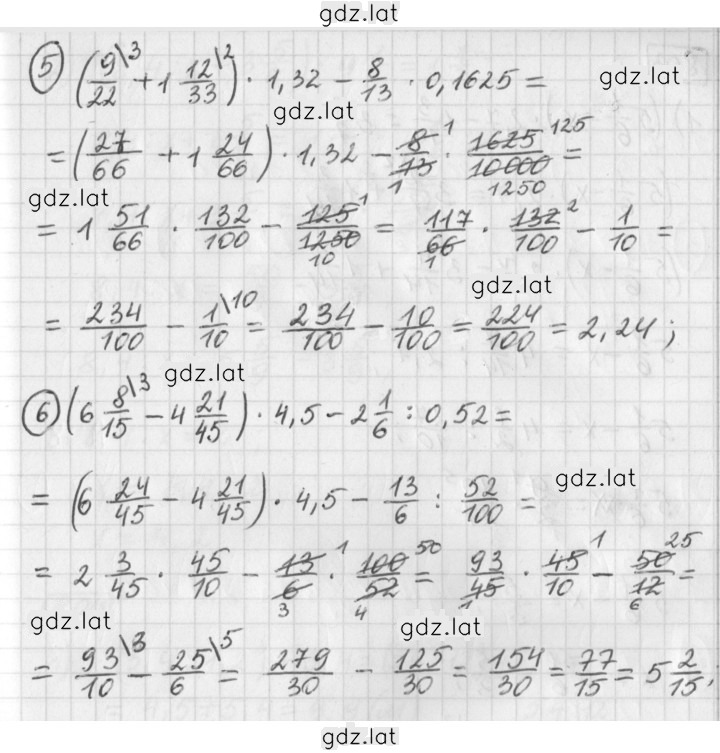 gdz.lat
5) (9/22\3 + 1 12/33\2) · 1,32 − 8/13 · 0,1625 =
gdz.lat
gdz.lat
= (27/66 + 1 24/66) · 1,32 − 8/13 1 1 · 1625/10000 125 1250 =
gdz.lat
= 1 51/66 · 132/100 − 125/1250 1 10 = 117/66 1 · 132/100 2 − 1/10 =
gdz.lat
= 234/100 − 1/10\10 = 234/100 − 10/100 = 224/100 = 2,24;
gdz.lat
6) (6 8/15\3 − 4 21/45) · 4,5 − 2 1/6 : 0,52 =
gdz.lat
= (6 24/45 − 4 21/45) · 4,5 − 13/6 : 52/100 =
= 2 3/45 · 45/10 − 13/6 1 3 · 100/52 50 4 = 93/45 1 · 45/10 1 − 50/12 25 6 =
gdz.lat
gdz.lat
= 93/10\3 − 25/6\5 = 279/30 − 125/30 = 154/30 = 77/15 = 5 2/15,
gdz.lat